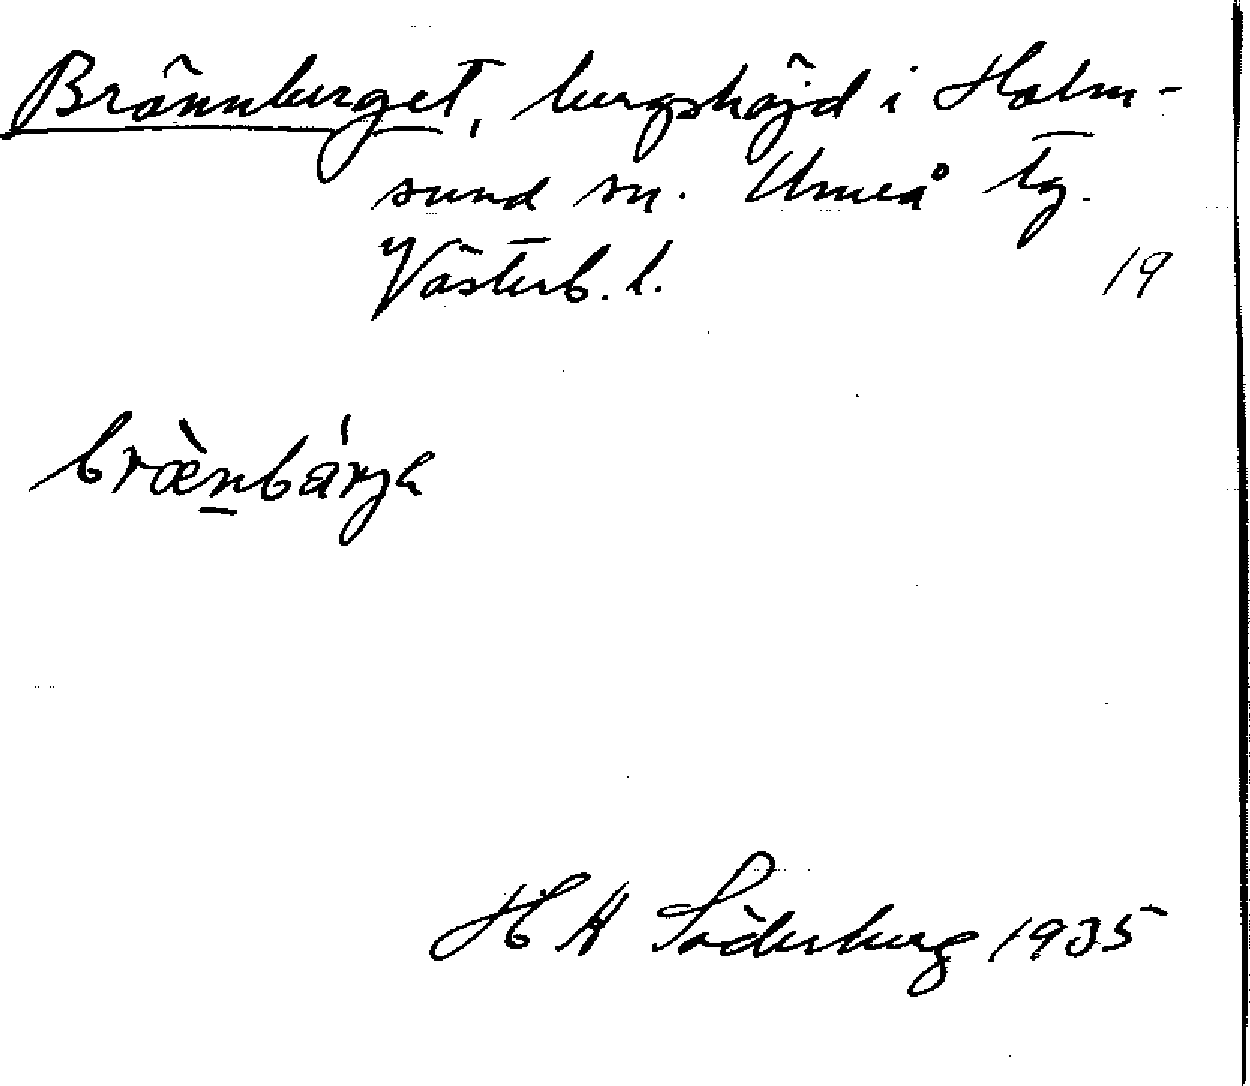 Brännberget, bergshöjd i Holm-
sund sn. Umeå tg.
Västerb. l.
19
bræ̀nbárjə
H A Söderberg 1935